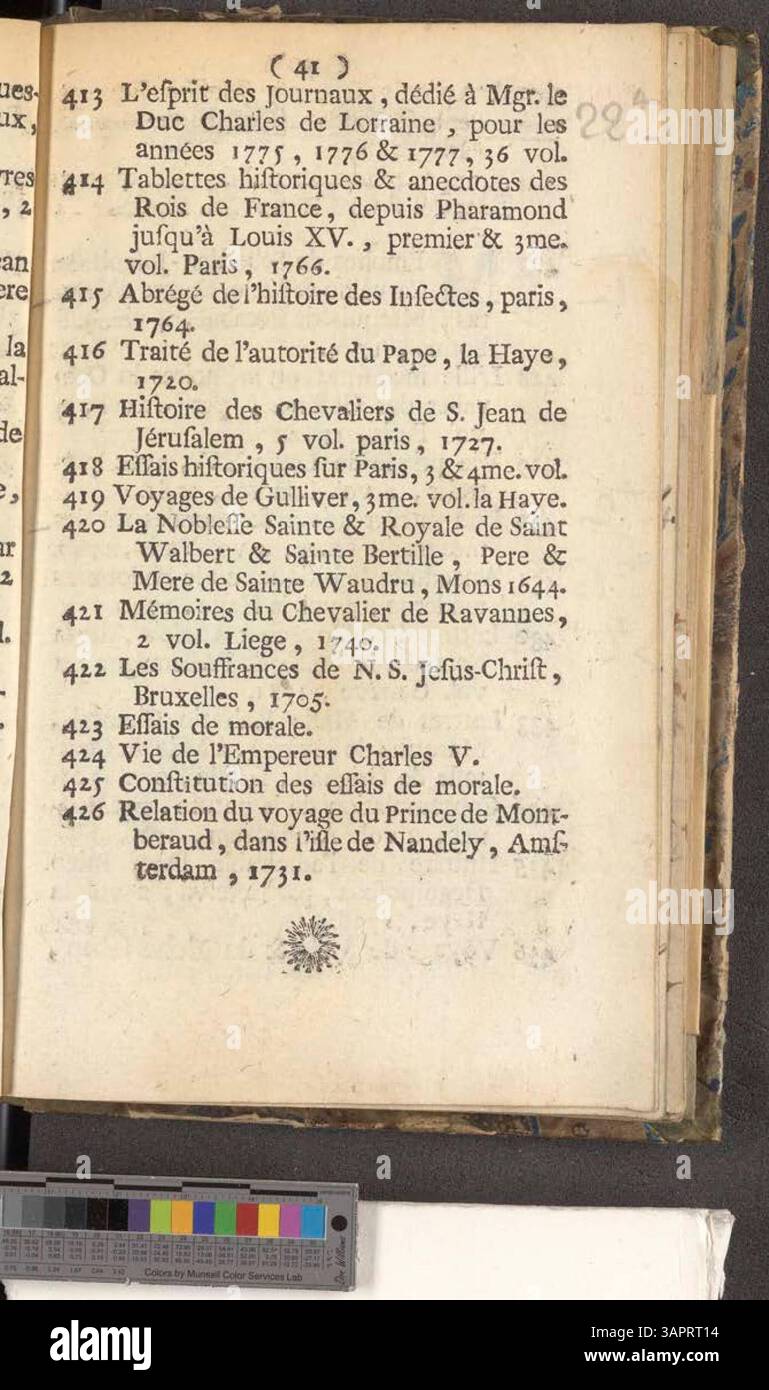 ( 41 )
413 L'eſprit des Journaux, dédié à Mgr. le
Duc Charles de Lorraine, pour les
années 1775, 1776 & 1777, 36 vol.
414 Tablettes hiſtoriques & anecdotes des
Rois de France, depuis Pharamond
juſqu'à Louis XV., premier & 3me.
vol. Paris, 1766.
415 Abrégé de l'hiſtoire des Inſectes, paris,
1764.
416 Traité de l'autorité du Pape, la Haye,
1720.
417 Hiſtoire des Chevaliers de S. Jean de
Jéruſalem, 5 vol. paris, 1727.
418 Eſſais hiſtoriques ſur Paris, 3 & 4me. vol.
419 Voyages de Gulliver, 3me. vol. la Haye.
420 La Nobleſſe Sainte & Royale de Saint
Walbert & Sainte Bertille, Pere &
Mere de Sainte Waudru, Mons 1644.
421 Mémoires du Chevalier de Ravannes,
2 vol. Liege, 1740.
422 Les Souffrances de N. S. Jeſus-Chriſt,
Bruxelles, 1705.
423 Eſſais de morale.
424 Vie de l'Empereur Charles V.
425 Conſtitution des eſſais de morale.
426 Relation du voyage du Prince de Mont-
beraud, dans l'iſle de Nandely, Amſ-
terdam, 1731.
Colors by Munsell Color Services Lab
alamy
Image ID: 3APRT14
www.alamy.com